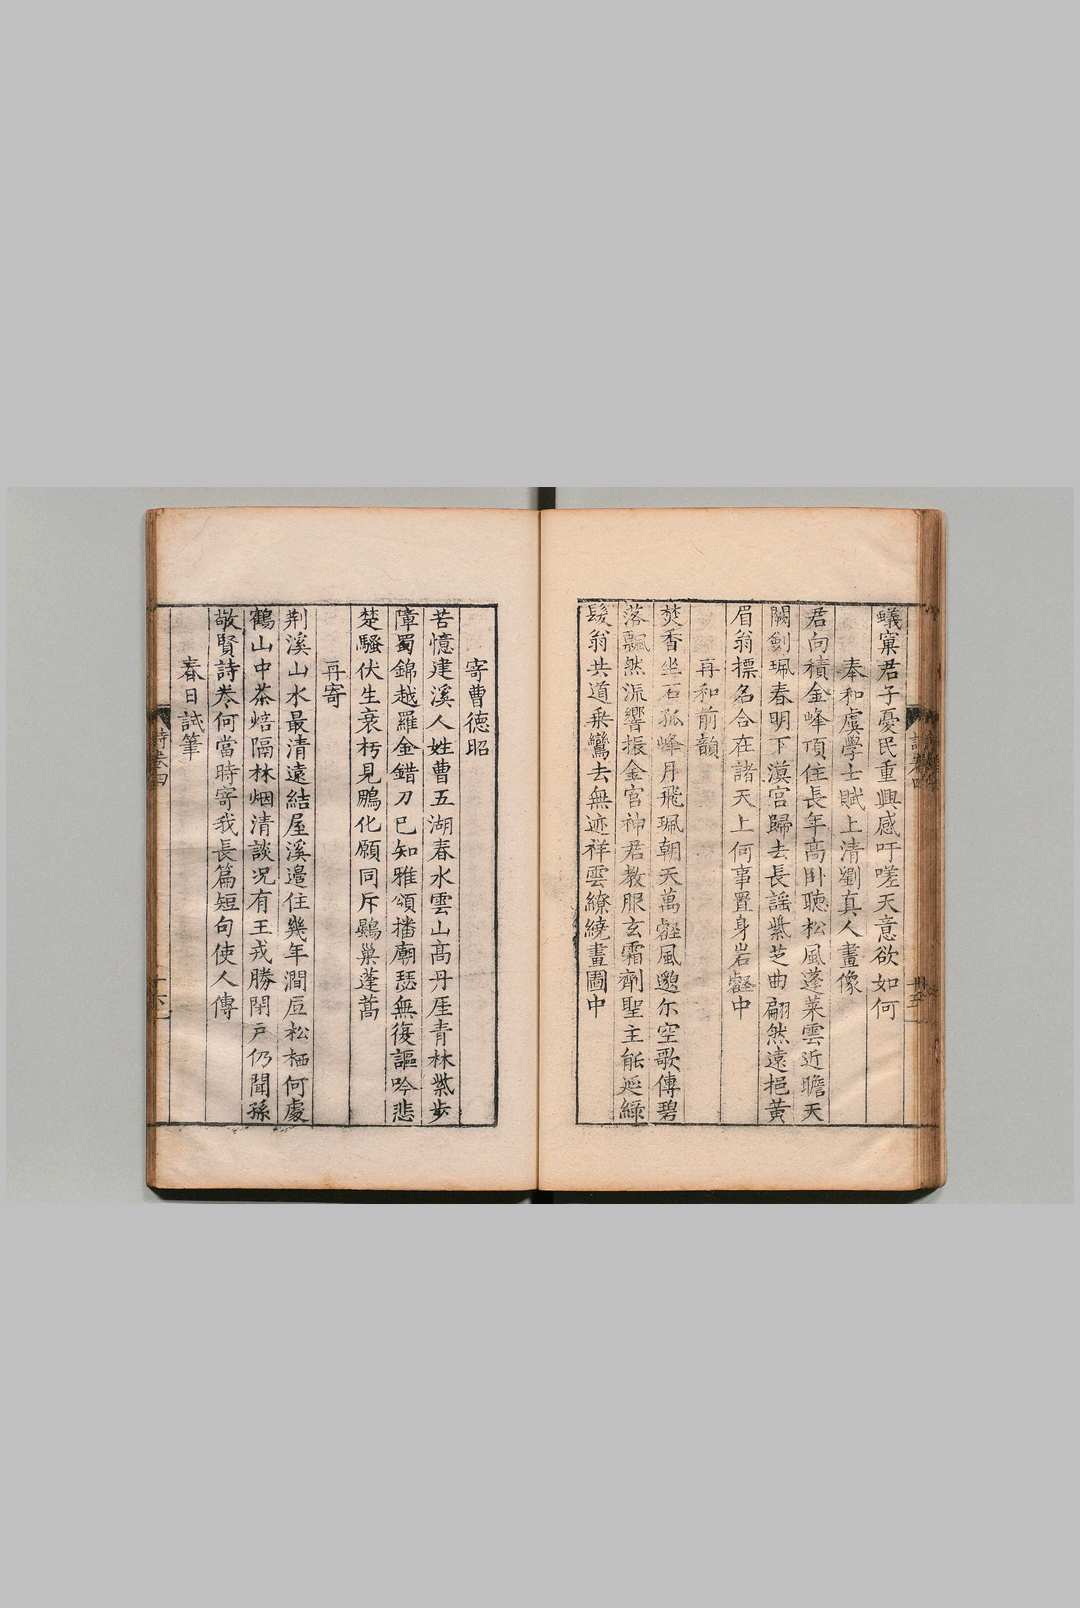 蟻窠君子憂民重興感吁嗟天意欲如何
奉和虛學士賦上清劉真人畫像
君向積金峰頂住長年高卧聴松風蓬萊雲近瞻天
闕劍珮春明下漢宮歸去長謡紫芝曲翩然遠挹黃
眉翁標名合在諸天上何事置身岩壑中
再和前韻
焚香坐石孤峰月飛珮朝天萬壑風邈尔空歌傳碧
落飄然流響振金宮神君教服玄霜劑聖主能延綠
髮翁共道乗鸞去無迹祥雲繚繞畫圖中
詩卷四
寄曹德昭
苦憶建溪人姓曹五湖春水雲山高丹厓青林紫步
障蜀錦越羅金錯刀已知雅頌播廟瑟無復謳吟悲
楚騷伏生衰朽見鵬化願同斥鷃巢蓬蒿
再寄
荆溪山水最清遠結屋溪邉住幾年澗戹松栖何處
鶴山中茶焙隔林烟清談况有王戎勝閉戸仍聞孫
敬賢詩卷何當時寄我長篇短句使人傳
春日試筆
詩卷四